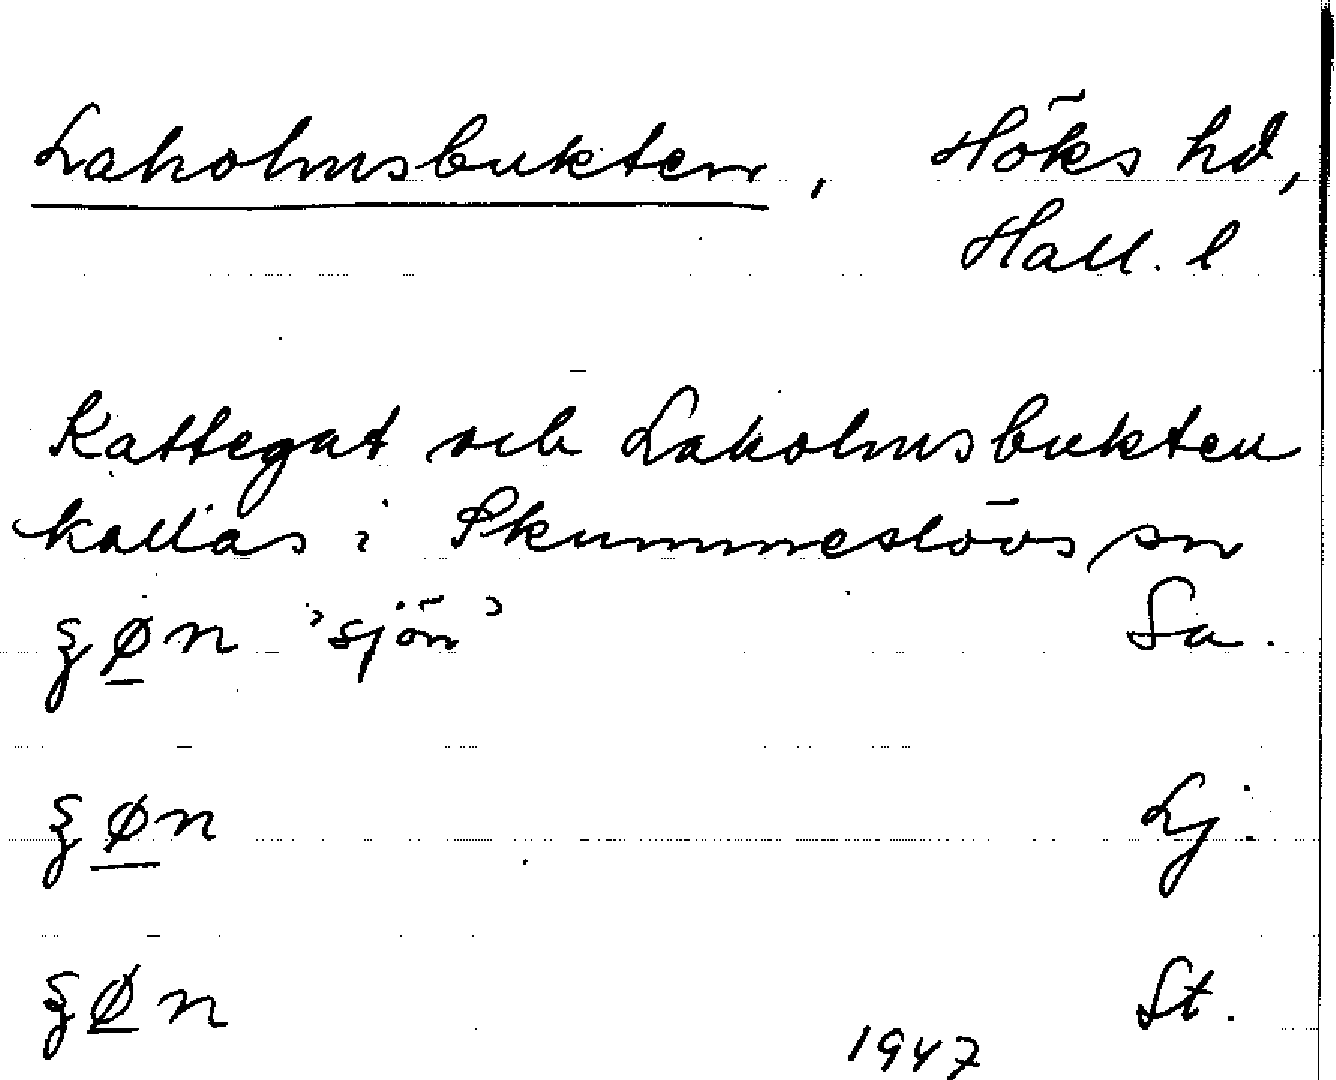 Laholmsbukten, Höks hd,
Hall. l
Kattegat och Laholmsbukten
kallas i Skummeslövs sn
ʒø̲n 'sjön' Sa.
ʒø̲n Lj.
ʒø̲n St.
1947